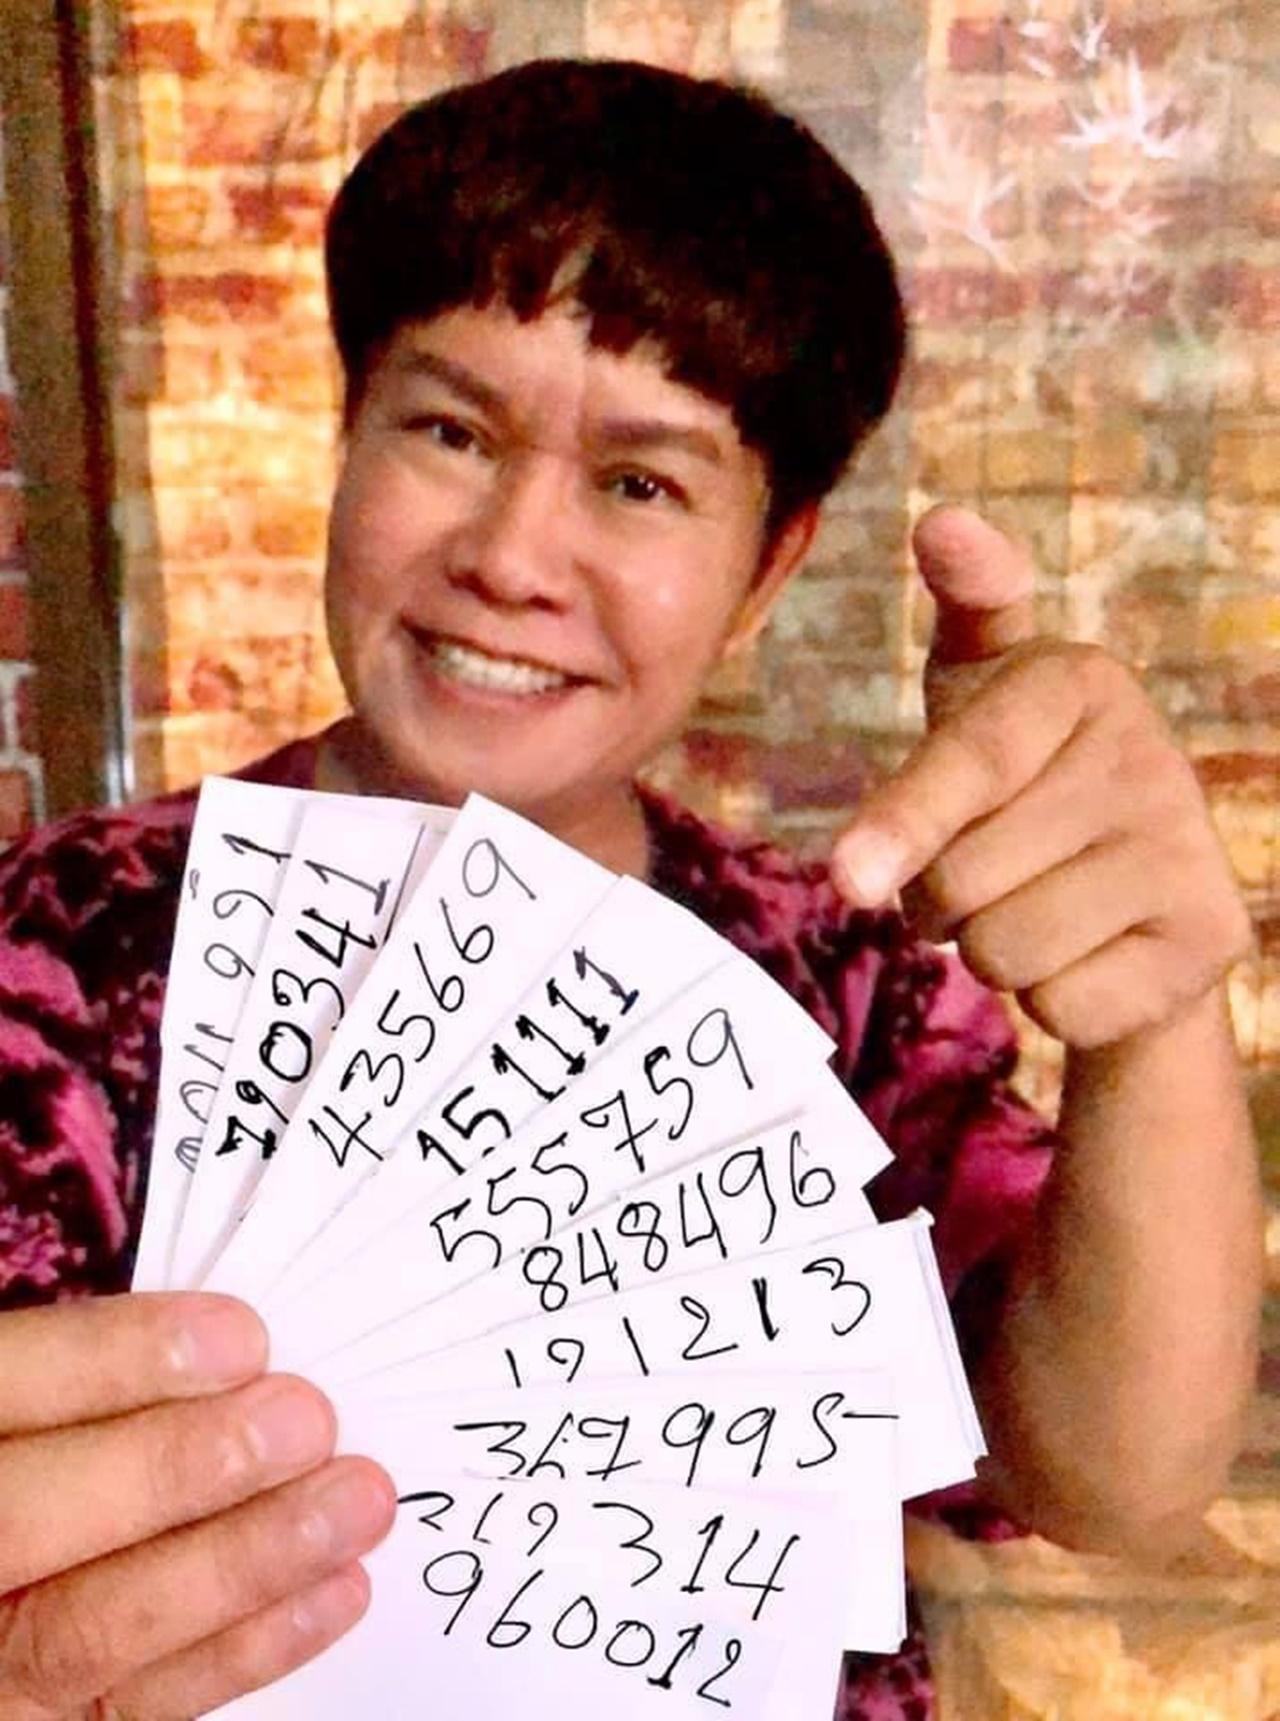 790341
435669
151111
555759
848496
191213
367995
219314
960012